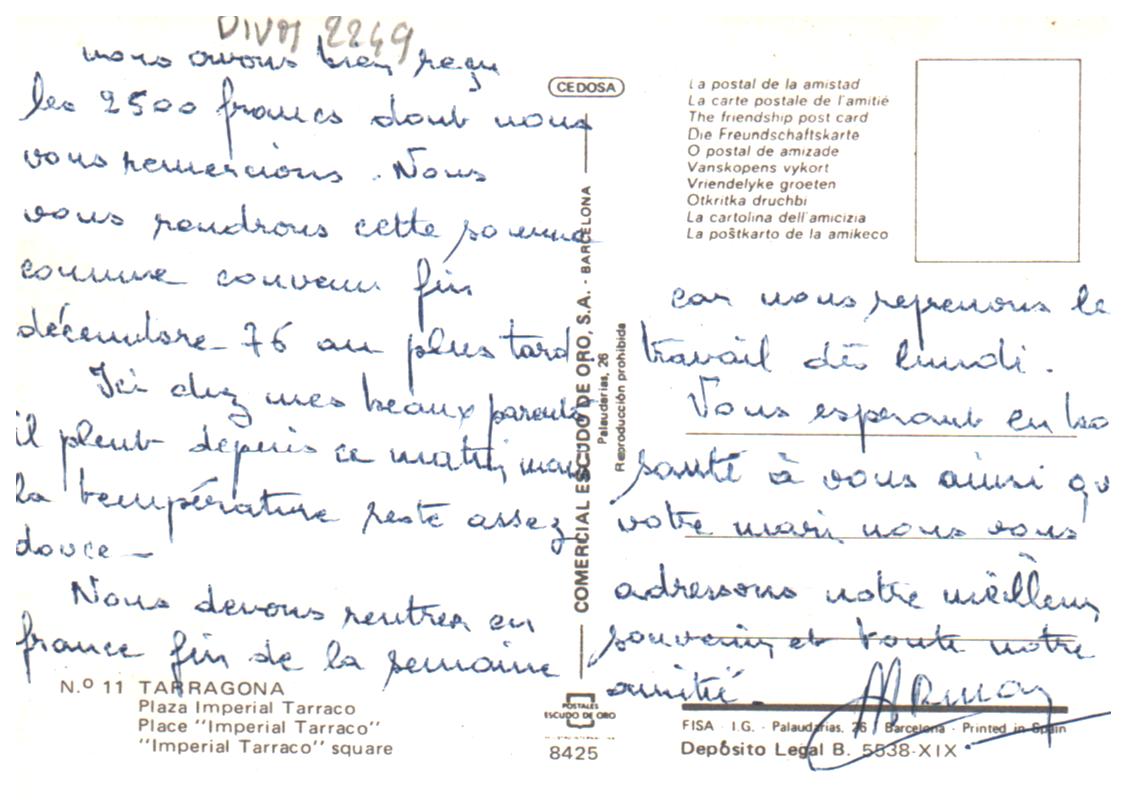 DIVM 2249
nous avons bien reçu
les 2500 francs dont nous
vous remercions. Nous
vous rendrons cette somme
comme convenu fin
décembre 76 au plus tard.
Ici chez mes beaux parents
il pleut depuis ce matin mais
la température reste assez
douce -
Nous devons rentrer en
france fin de la semaine
N.º 11 TARRAGONA
Plaza Imperial Tarraco
Place "Imperial Tarraco"
"Imperial Tarraco" square
CEDOSA
COMERCIAL ESCUDO DE ORO, S.A. - BARCELONA
Palaudarias, 26
Reproducción prohibida
POSTALES
ESCUDO DE ORO
8425
La postal de la amistad
La carte postale de l'amitié
The friendship post card
Die Freundschaftskarte
O postal de amizade
Vanskopens vykort
Vriendelyke groeten
Otkritka druchbi
La cartolina dell'amicizia
La poŝtkarto de la amikeco
car nous reprenons le
travail dès lundi.
Vous esperant en bo
santé à vous ainsi qu
votre mari nous vous
adressons notre meilleur
souvenir et toute notre
amitié.
FISA - I.G. - Palaudarias, 26 - Barcelona - Printed in Spain
Depósito Legal B. 5538-XIX